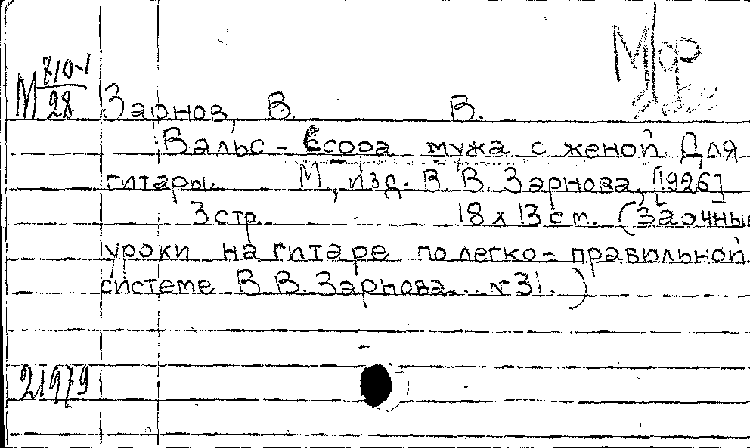 М 710-1 / 28
Зарнов, В. В.
Вальс - Ссора мужа с женой. Для
гитары. М., изд. В. В. Зарнова, [1926]
3 стр. 18 х 13 ст. (Заочные
уроки на гитаре по легко-правильной
системе В. В. Зарнова... № 31.)
21979